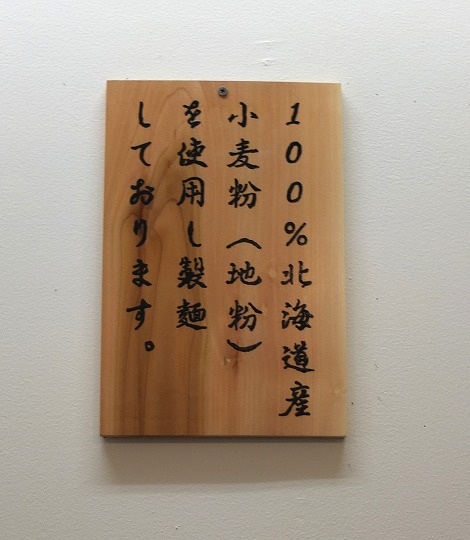 100%北海道産
小麦粉（地粉）
を使用し製麺
しております。